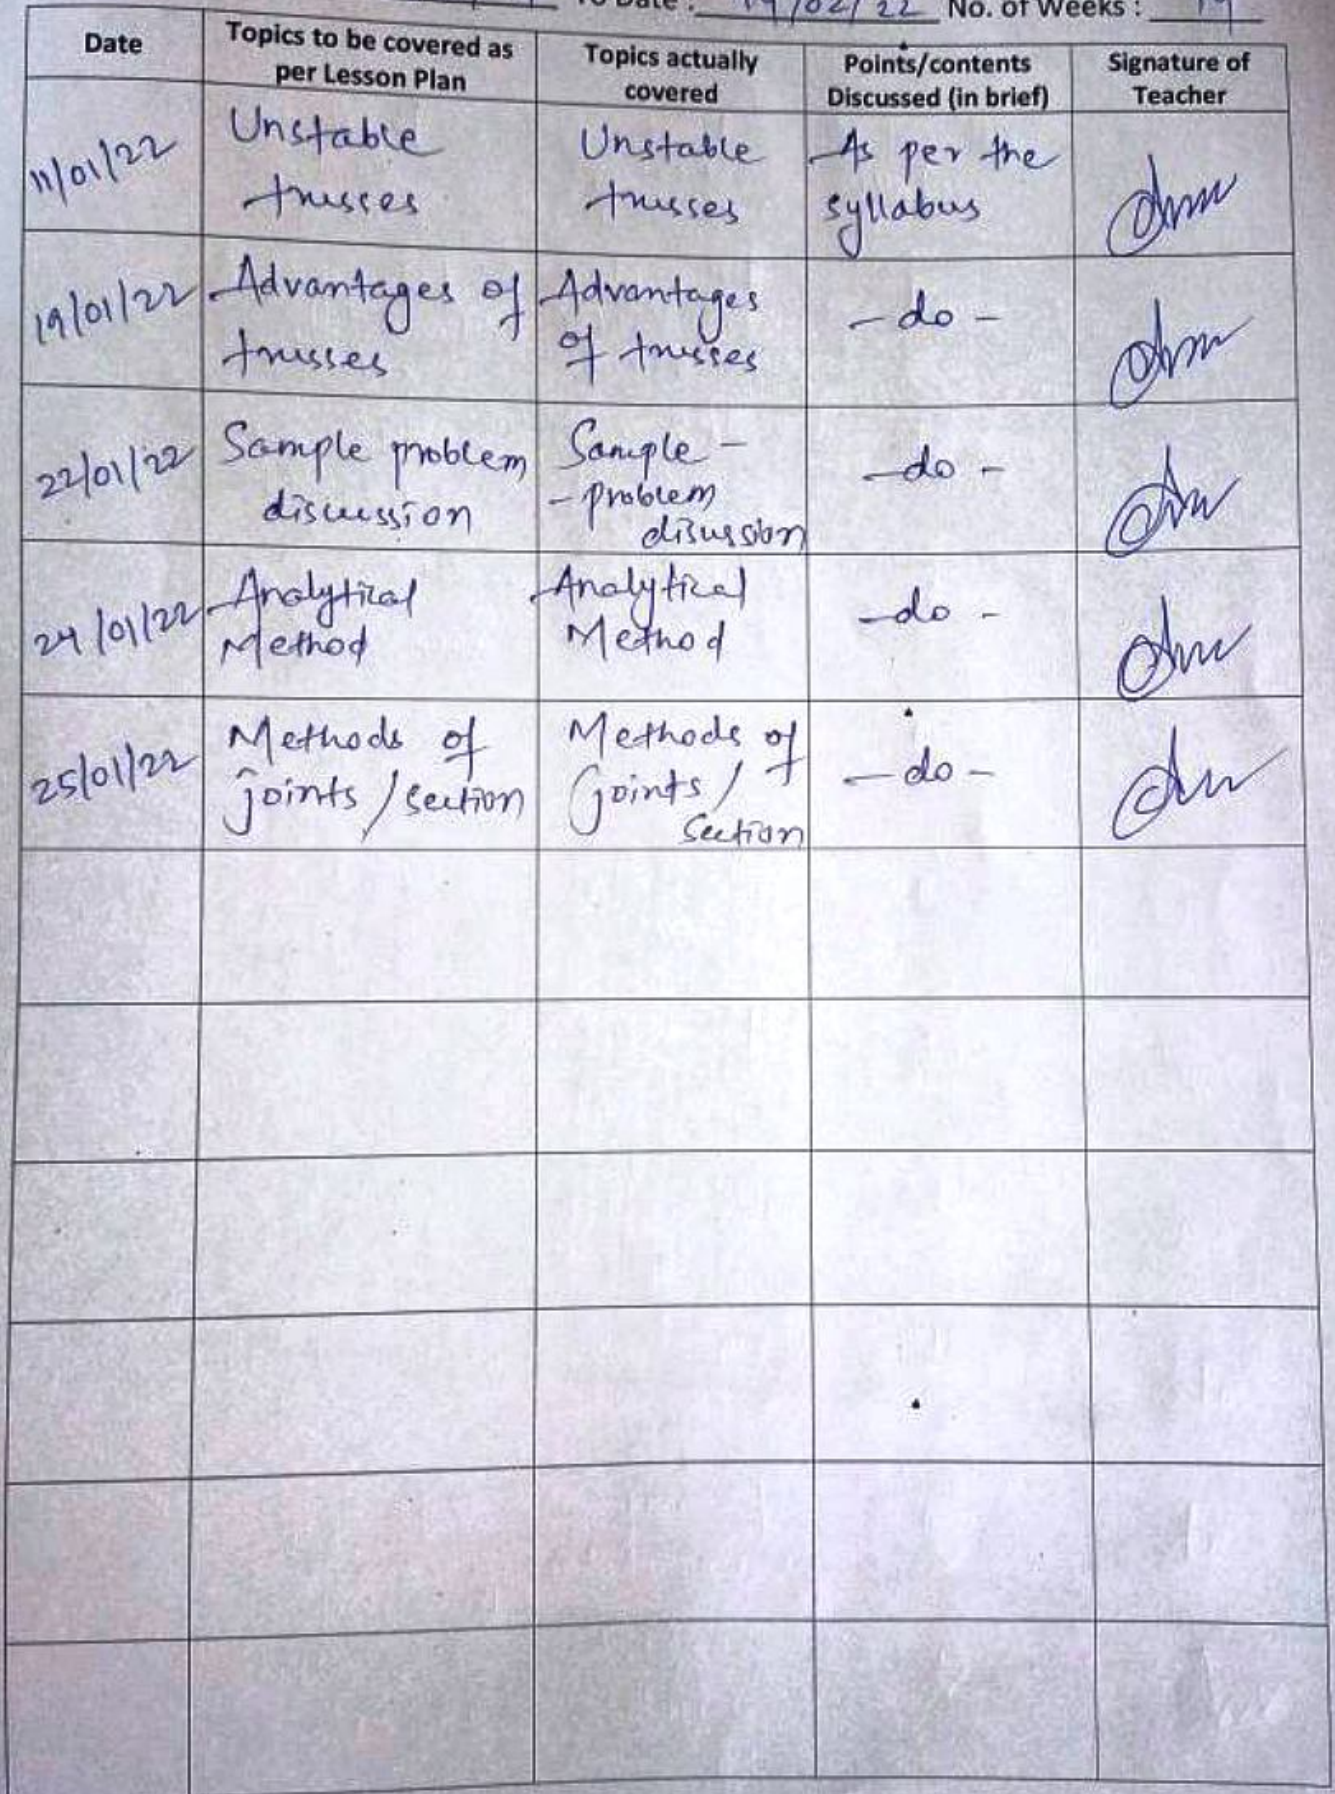 To Date : 19/02/22 No. of Weeks :
Date
Topics to be covered as
per Lesson Plan
Topics actually
covered
Points/contents
Discussed (in brief)
Signature of
Teacher
11/01/22
Unstable
trusses
Unstable
trusses
As per the
syllabus
19/01/22
Advantages of
trusses
Advantages
of trusses
- do -
22/01/22
Sample problem
discussion
Sample -
- problem
disussion
- do -
24/01/22
Analytical
Method
Analytical
Method
- do -
25/01/22
Methods of
joints / section
Methods of
joints /
section
- do -